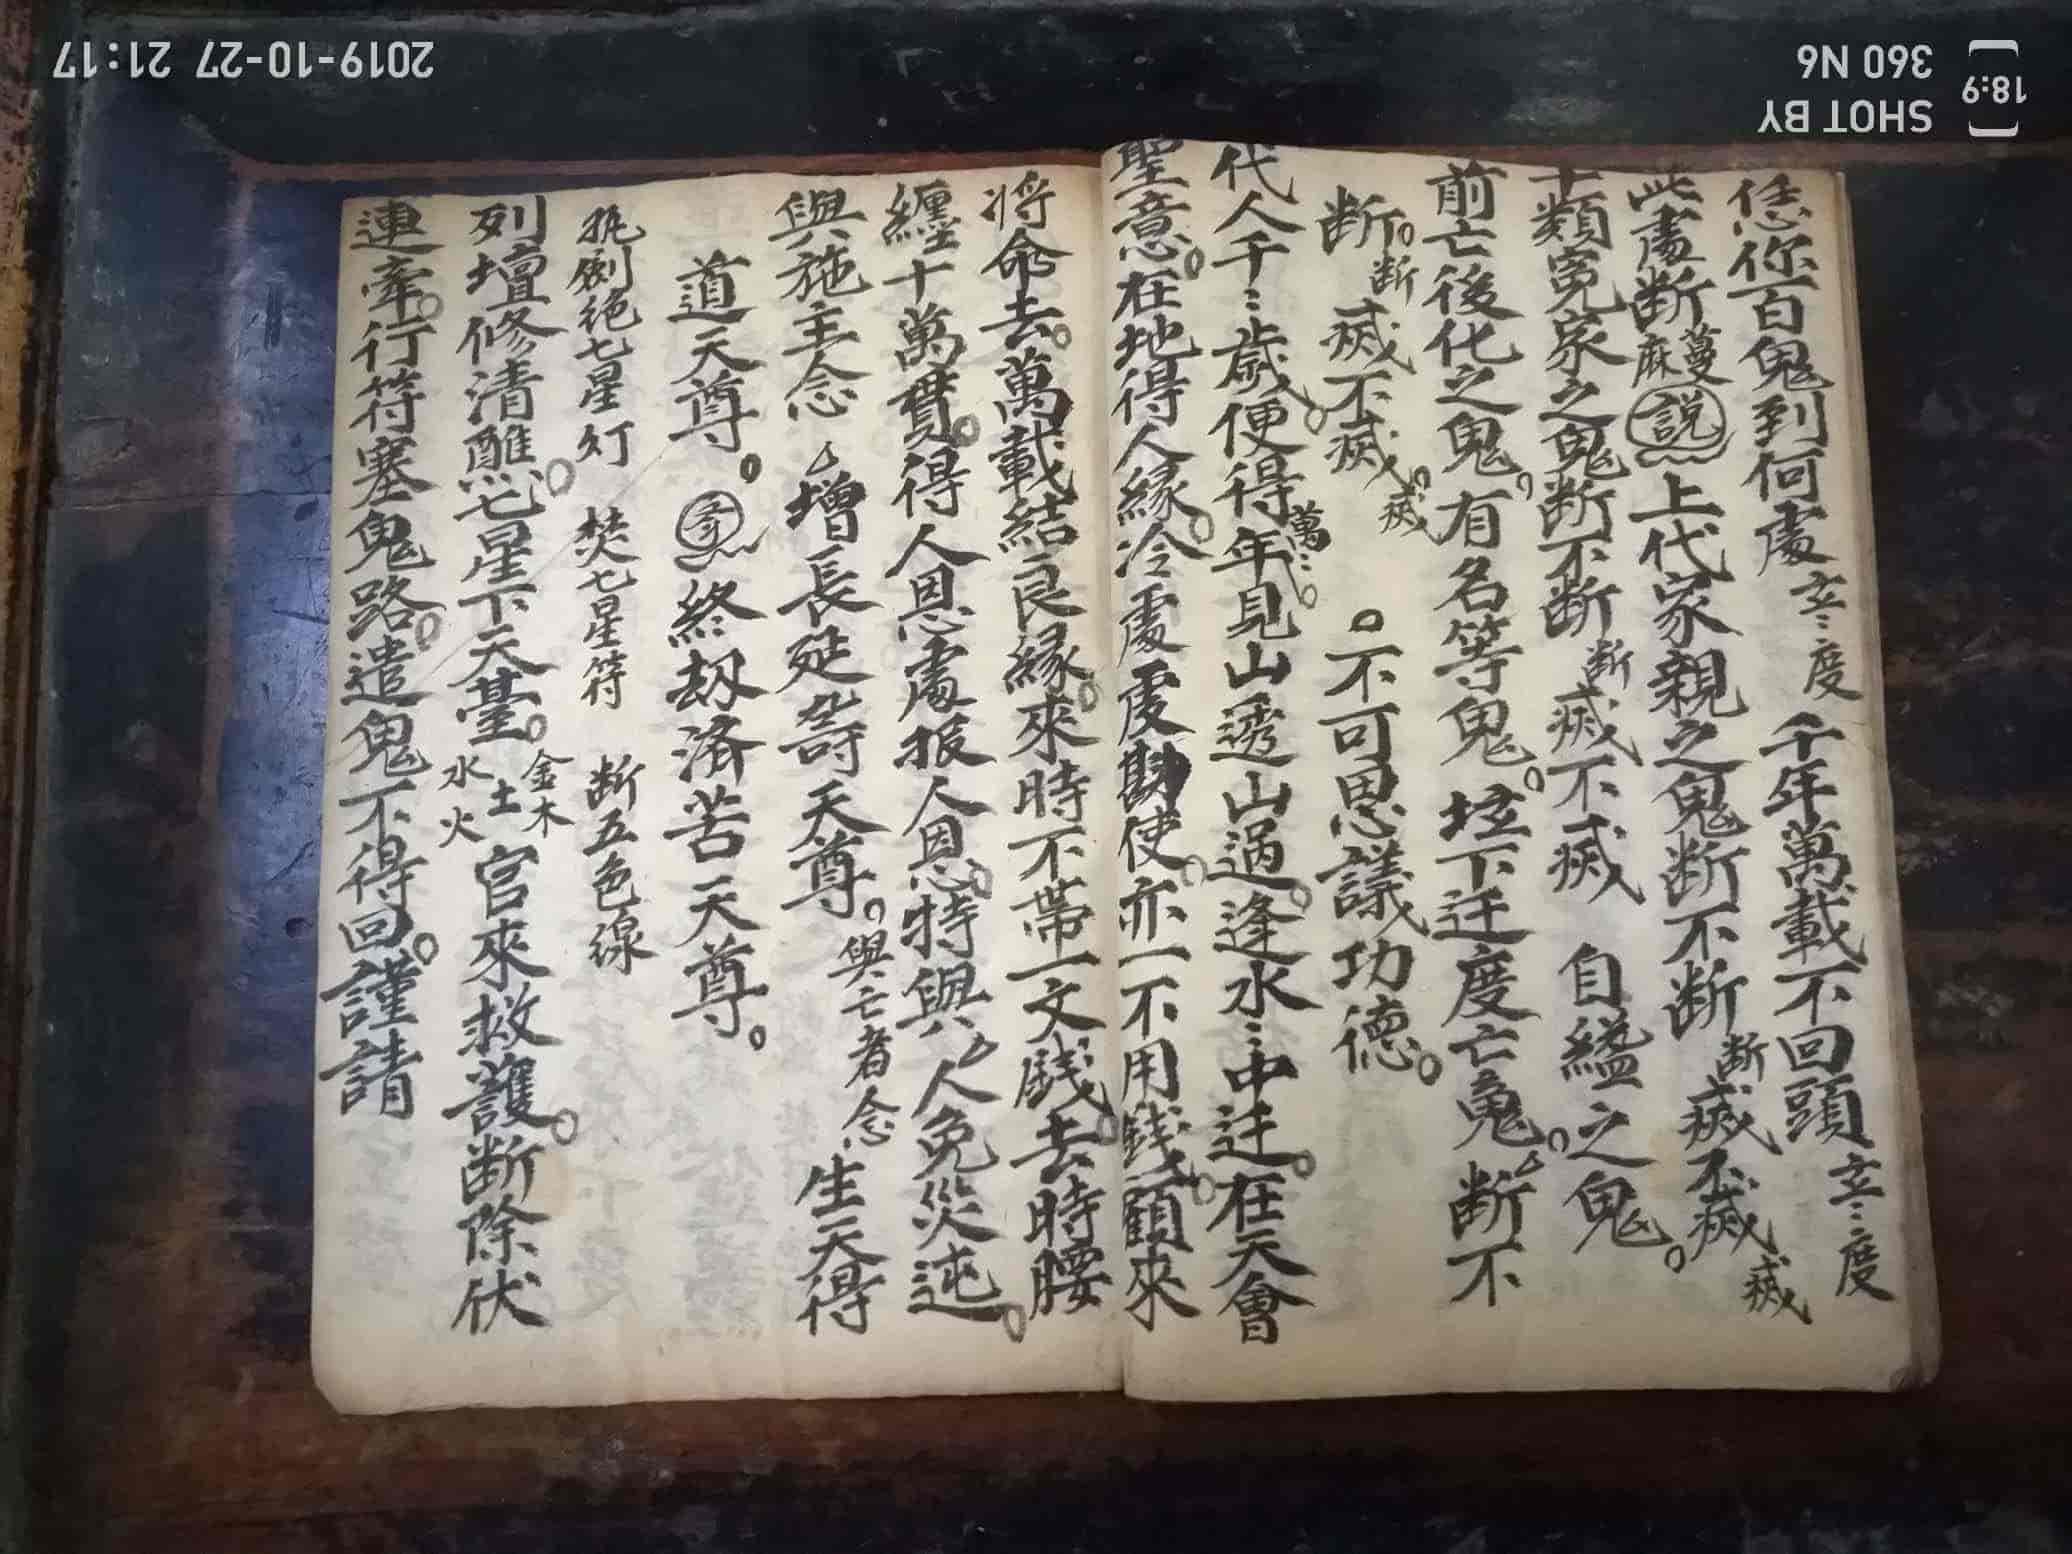 恁你百鬼到何處 立〻度 千年萬載不回頭 立〻度
此處断 蔓麻 說 上代家親之鬼断不断 断 㓕不㓕 㓕
十類冤家之鬼断不断 断 㓕不㓕 自縊之鬼。
前亡後化之鬼。有名等鬼。坟下迁度亡鬼。断不
断。断 㓕不㓕。㓕 不可思議功德。
代人千〻歲便得年 萬〻 見山透山過逢水〻中迁。在天會
聖意。在地得人緣冷處處斟使亦一不用錢顧來
將命去。萬載結良緣來時不帶一文錢去時腰
纏十萬貫。得人恩處报人恩。特與人免災迍。
與施主念 增長延壽天尊。與亡者念 生天得
道天尊。終劫済苦天尊。
執劍絶七星灯 焚七星符 断五色線
列壇修清醮。七星下天䑓。金木土水火 官來救護。断除伏
連牽。行符塞鬼路。遣鬼不得回。謹請
2019-10-27 21:17
SHOT BY
360 N6
18:9